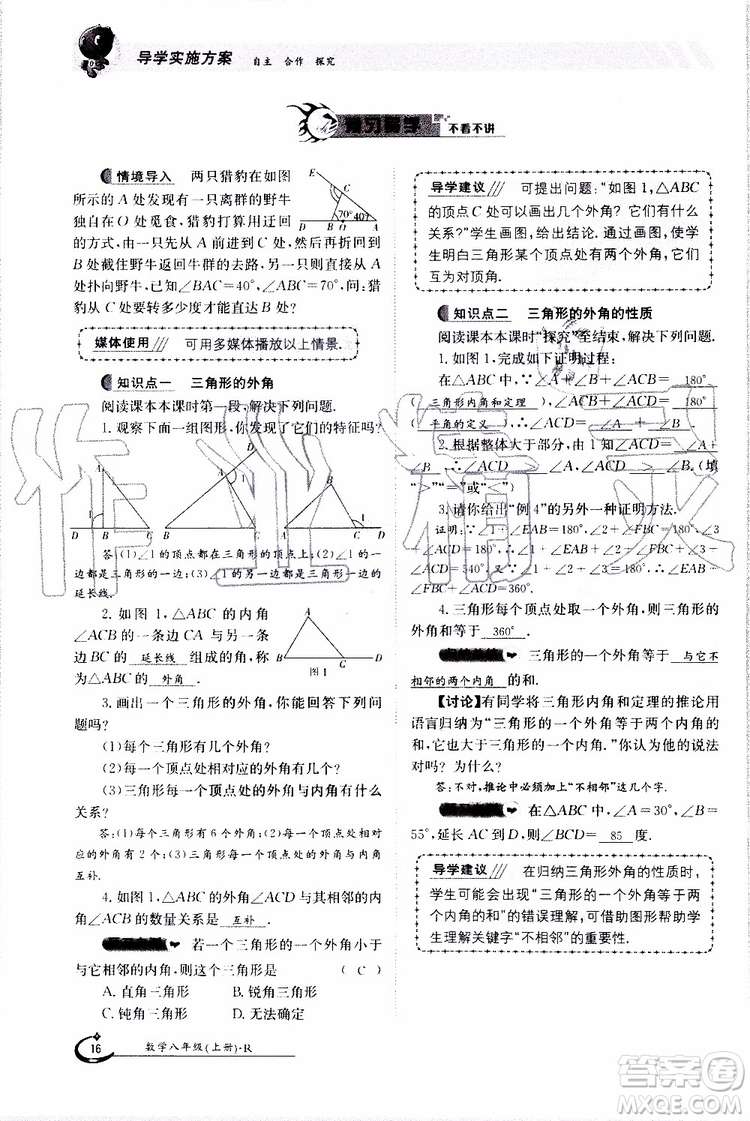 导学实施方案 自主 合作 探究
不看不讲
情境导入 两只猎豹在如图
所示的 A 处发现有一只野牛
独自在 O 处觅食,猎豹打算用迂回
的方式,由 A 处沿直线先前往 B
处,然后再折回到
C 处截住野牛返回牛群的去路,再直
处扑向野牛,∠BAC=40°,∠ 问:猎
豹从 C 处要转多少度才能直达 B 处?
E
C
70°
40°
D B O A
媒体使用 可用多媒体播放以上情景.
知识点一 三角形的外角
阅读课本本课时第一段,解决下列问题.
1. 观察下面一组图形,你发现了它们的特征吗?
A
1
D B C
D
A
1
B C
B
1
A C D
答:(1)∠1 的顶点都在三角形的顶点上;(2)∠1 的一
边都是三角形的一边;(3)∠1 的另一边都是三角形一边的
延长线.
2. 如图 1,△ABC 的内角
∠ACB 的一条边 CA 与另一条
边 BC 的 延长线 组成的角,称
为△ABC 的 外角 .
A
B C D
图 1
3. 画出一个三角形的外角,你能回答下列问
题吗?
(1)每个三角形有几个外角?
(2)每一个顶点处相对应的外角有几个?
(3)每一个顶点处的外角与内角有什么
关系?
答:(1)每个三角形有 6 个外角;(2)每一个顶点处相对
应的外角有 2 个;(3)每一个三角形顶点处的外角与内角
互补.
4. △ABC 的外角∠ACD 与其相邻的内角
∠ACB 的数量关系是 互补 .
若一个三角形的一个外角小于
与它相邻的内角,则这个三角形是 ( C )
A. 直角三角形 B. 锐角三角形
C. 钝角三角形 D. 无法确定
导学建议 可提出问题:“如图 1,△ABC
的顶点 C 处可以画出几个外角?它们有什么
关系?”学生画图,给出结论.通过画图,使学
生明白三角形某个顶点处的外角有两个,它们
互为对顶角.
知识点二 三角形的外角的性质
阅读课本本课时“探究”至结束,解决下列问题.
1. 如图 1,完成如下证明过程:
在△ABC 中,∵∠A+∠B+∠ACB= 180°
( 三角形内角和定理 ),∠ACB+∠ACD= 180°
( 平角的定义 ),∴∠ACD=∠ A +∠ B .
2. 根据整体大于部分,由 1 知∠ACD=∠A+
∠B,∴∠ACD > ∠A,∠ACD > ∠B.(填
“>”“=”或“<”)
3. 请你给出“例 4”的另一种证明方法.
证明:∵∠1+∠EAB=180°,∠2+∠FBC=180°,
∠3+∠ACD=180°,∴∠1+∠EAB+∠2+∠FBC+∠3+
∠ACD=540°,又∵∠1+∠2+∠3=180°,∴∠EAB+∠FBC+
∠ACD=360°.
4. 三角形每个顶点处取一个外角,则三角形的
外角和等于 360° .
三角形的一个外角等于 与它不
相邻的两个内角 的和.
【讨论】有同学将三角形内角和定理的推论用
语言归纳为“三角形的一个外角等于两个内角的
和,三角形的一个外角大于三角形的一个内角.”你认为他的说法
对吗? 为什么?
答:不对,推论中必须加上“不相邻”这几个字.
在△ABC 中,∠A=30°,∠B=
55°,延长 AC 到 D,则∠BCD= 85 度.
导学建议 在归纳三角形外角的性质时,
学生可能会出现“三角形的一个外角等于两
个内角的和”的错误理解,可借助图形帮助学
生理解关键字“不相邻”的重要性.
16 数学八年级(上册)·R
作业精灵
答案圈
MXQE.COM